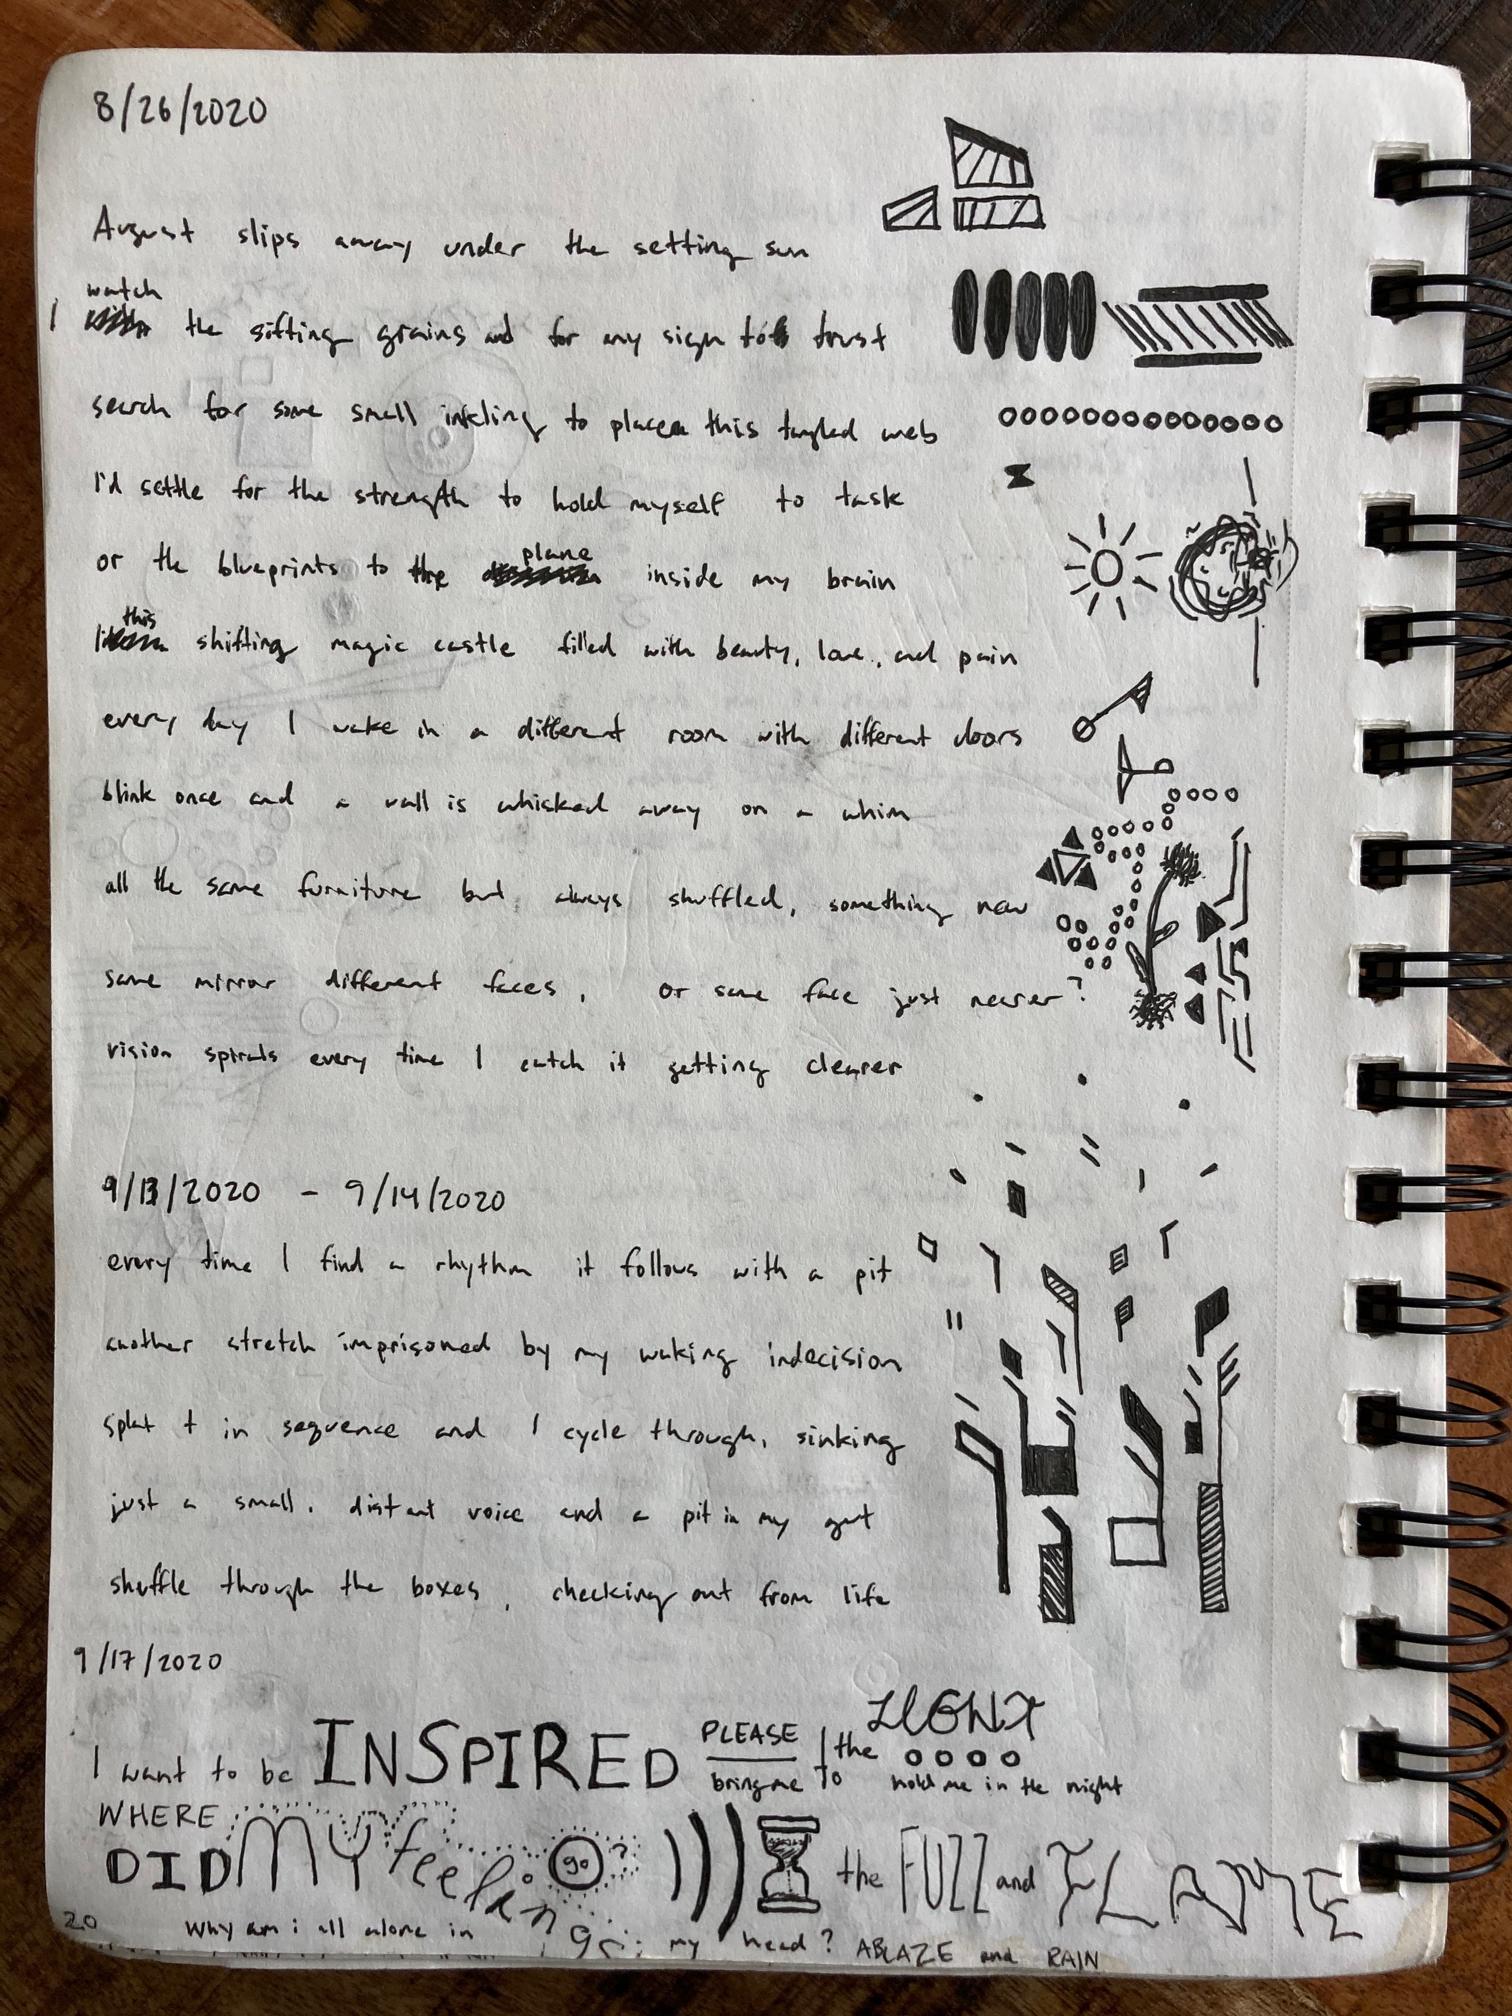 8/26/2020
August slips away under the setting sun
I watch the sifting grains and for my sign to trust
search for some small inkling to place this tangled web
I'd settle for the strength to hold myself to task
or the blueprints to the plane inside my brain
this shifting magic castle filled with beauty, love, and pain
every day I wake in a different room with different doors
blink once and a wall is whisked away on a whim
all the same furniture but always shuffled, something new
same mirror different faces, or same face just nearer?
vision spirals every time I catch it getting clearer
9/13/2020 - 9/14/2020
every time I find a rhythm it follows with a pit
another stretch imprisoned by my waking indecision
in sequence and I cycle through, sinking
just a small, distant voice and a pit in my gut
shuffle through the boxes, checking out from life
9/17/2020
I want to be INSPIRED PLEASE bring me to the hold me in the night
WHERE DID MY feelings go? the FUZZ and FLAME
20 Why am i all alone in my head? ABLAZE and RAIN